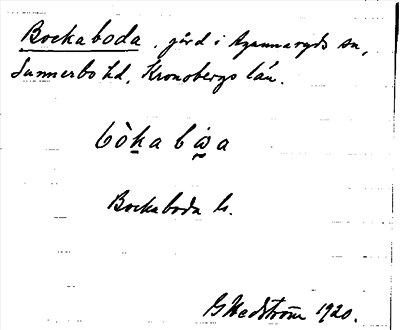 Bockaboda, gård i Agunnaryds sn,
Sunnerbo hd, Kronobergs län.
bòkabåa
Bockaboda h.
G Hedström 1920.